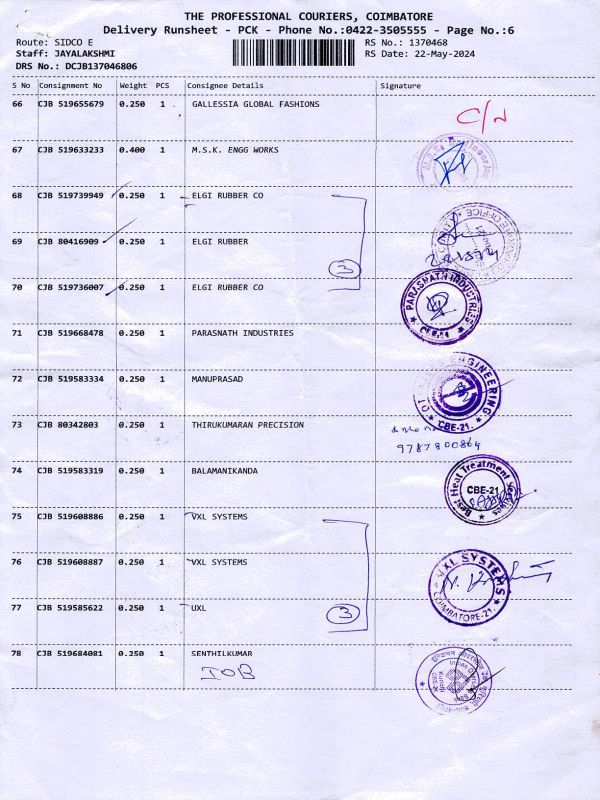 THE PROFESSIONAL COURIERS, COIMBATORE
Delivery Runsheet - PCK - Phone No.:0422-3505555 - Page No.:6
Route: SIDCO E
RS No.: 1370468
Staff: JAYALAKSHMI
RS Date: 22-May-2024
DRS No.: DCJB137046806
S No Consignment No Weight PCS Consignee Details Signature
66 CJB 519655679 0.250 1 GALLESSIA GLOBAL FASHIONS
C/N
67 CJB 519633233 0.400 1 M.S.K. ENGG WORKS
68 CJB 519739949 0.250 1 ELGI RUBBER CO
69 CJB 80416909 0.250 1 ELGI RUBBER
3
70 CJB 519736007 0.250 1 ELGI RUBBER CO
PARASNATH INDUSTRIES
CBE-21
71 CJB 519668478 0.250 1 PARASNATH INDUSTRIES
72 CJB 519583334 0.250 1 MANUPRASAD
ENGINEERING
CBE-21.
73 CJB 80342803 0.250 1 THIRUKUMARAN PRECISION
9787800864
74 CJB 519583319 0.250 1 BALAMANIKANDA
Best Heat Treatment Services
CBE-21
75 CJB 519608886 0.250 1 VXL SYSTEMS
76 CJB 519608887 0.250 1 VXL SYSTEMS
VXL SYSTEMS
COIMBATORE-21.
77 CJB 519585622 0.250 1 UXL
3
78 CJB 519684081 0.250 1 SENTHILKUMAR
IOB